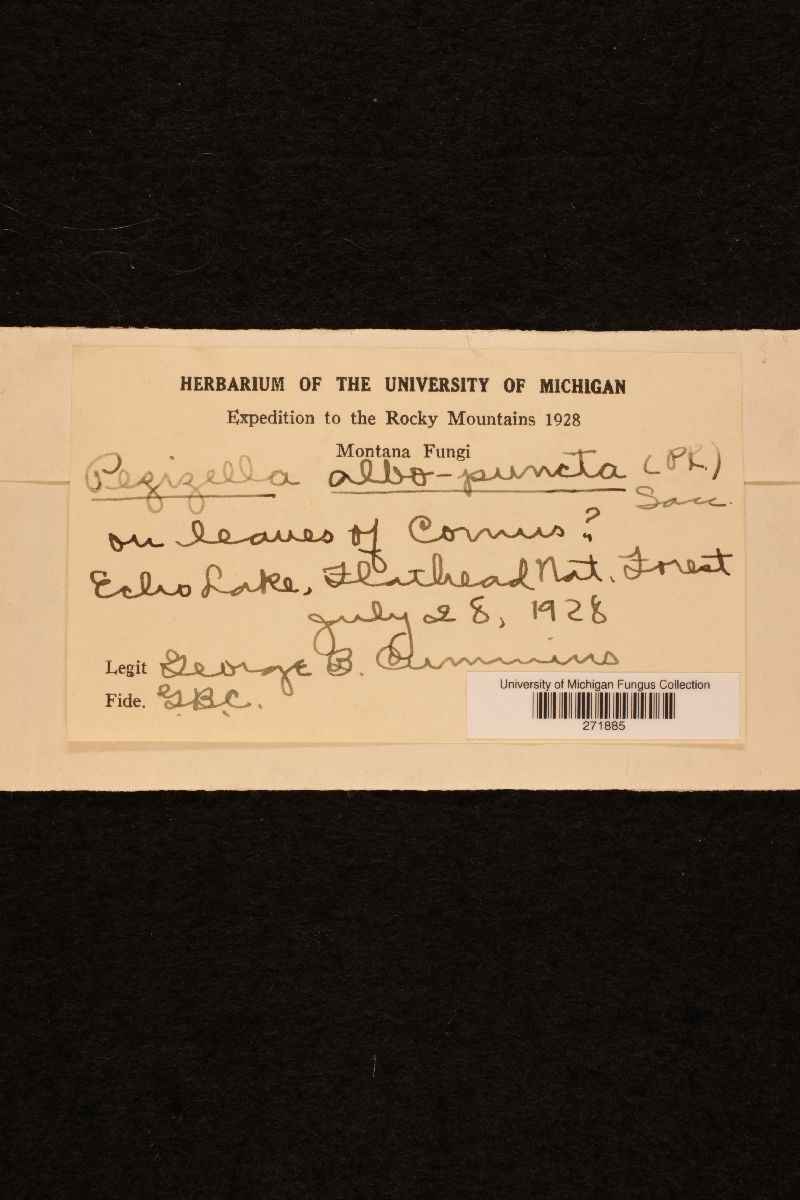 HERBARIUM OF THE UNIVERSITY OF MICHIGAN
Expedition to the Rocky Mountains 1928
Montana Fungi
Pezizella albo-puncta (Pk.)
Sacc.
on leaves of Cornus?
Echo Lake, Flathead Nat. Forest
July 28, 1928
Legit George B. Cummins
Fide. G.B.C.
University of Michigan Fungus Collection
271885